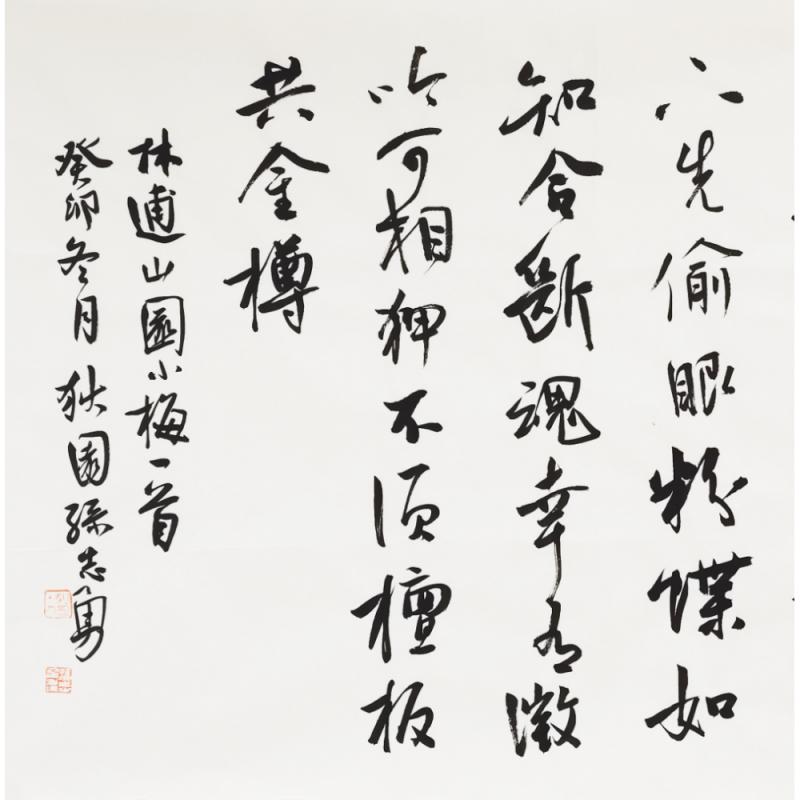 下先偷眼粉蝶如
知合断魂幸有微
吟可相狎不须檀板
共金樽
林逋山园小梅一首
癸卯冬月狄园孙志勇